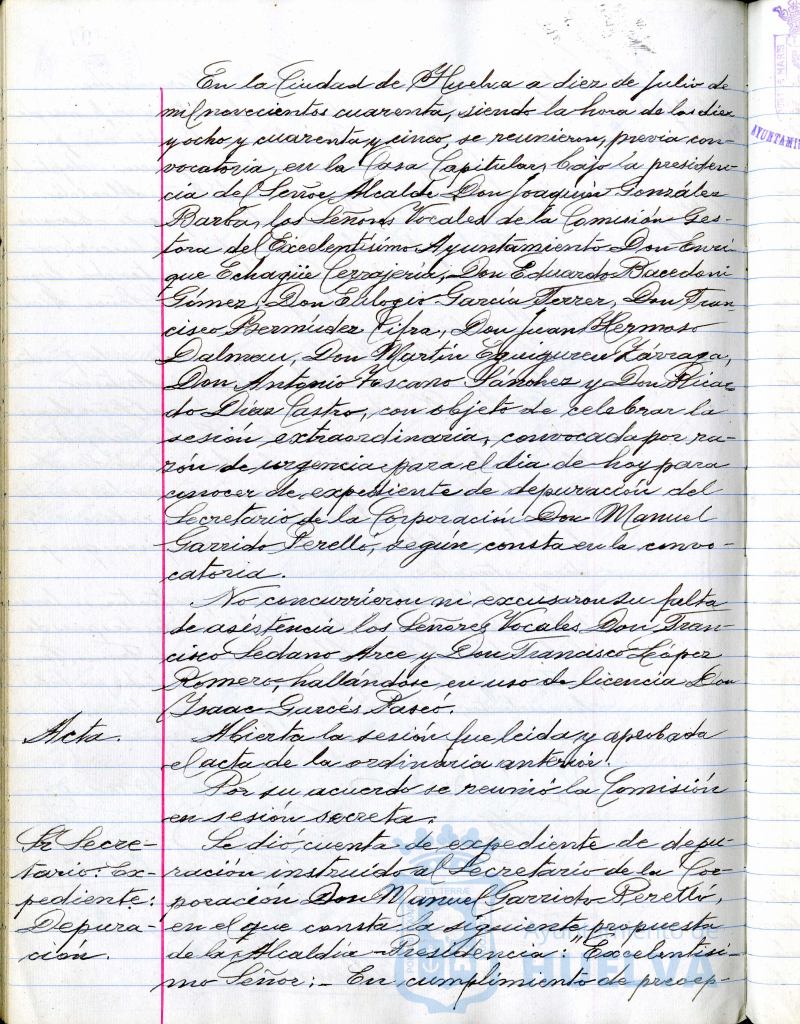 En la Ciudad de Huelva a diez de Julio de
mil novecientos cuarenta, siendo la hora de las diez
y ocho y cuarenta y cinco, se reunieron, previa con-
vocatoria, en la Casa Capitular, bajo la presiden-
cia del Señor Alcalde Don Joaquín González
Barba, los Señores Vocales de la Comisión Ges-
tora del Excelentísimo Ayuntamiento Don Enri-
que Echagüe Cerrajería, Don Eduardo Bacedoni
Gómez, Don Eulogio García Ferrer, Don Fran-
cisco Bermúdez Cifra, Don Juan Hermoso
Dalmau, Don Martín Eguiguren Zárraga,
Don Antonio Toscano Sánchez y Don Ricar-
do Díaz Castro, con objeto de celebrar la
sesión extraordinaria, convocada por ra-
zón de urgencia para el dia de hoy para
conocer de expediente de depuración del
Secretario de la Corporación Don Manuel
Garrido Perelló, según consta en la convo-
catoria.
No concurrieron ni excusaron su falta
de asistencia los Señores Vocales Don Fran-
cisco Sedano Arce y Don Francisco López
Romero, hallándose en uso de licencia Don
Isaac Garcés Pasco.
Acta.
Abierta la sesión fue leida y aprobada
el acta de la ordinaria anterior.
Por su acuerdo se reunió la Comisión
en sesión secreta.
Sr Secre-
tario: Ex-
pediente:
Depura-
ción.
Se dió cuenta de expediente de depu-
ración instruido al Secretario de la Cor-
poración Don Manuel Garrido Perelló,
en el que consta la siguiente propuesta
de la Alcaldia-Presidencia: "Excelentísi-
mo Señor:- En cumplimiento de precep-
Ayuntamiento de
HUELVA